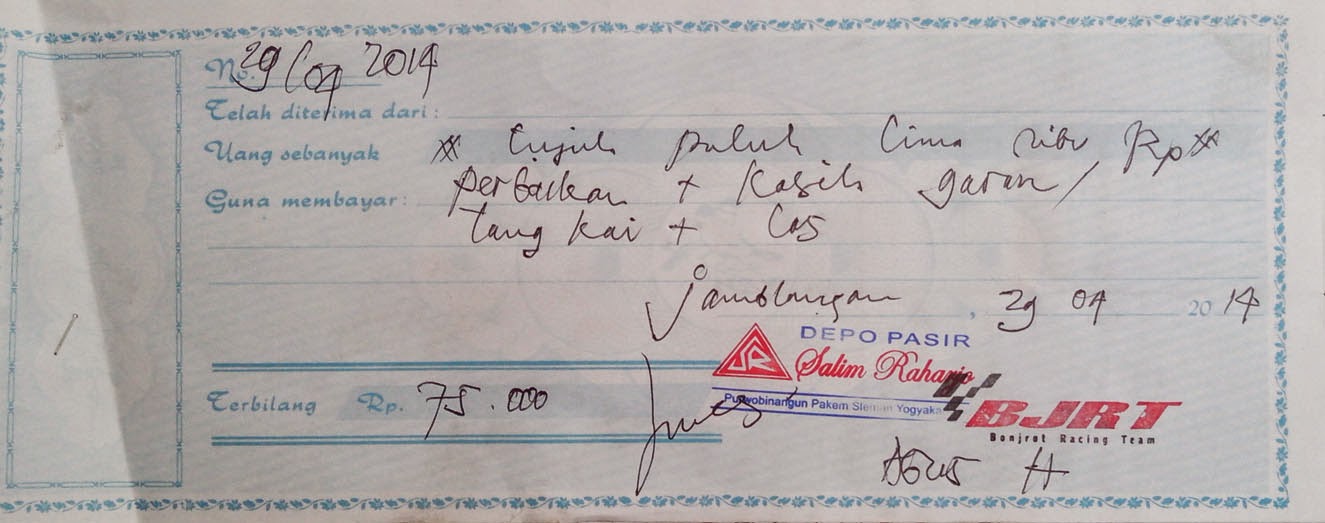 No. 29/04 2014
Telah diterima dari :
Uang sebanyak # tujuh puluh lima ribu Rp #
Guna membayar : perbaikan + kasih garan/
tangkai + Cas
Jamblangan, 29 04 2014
DEPO PASIR
SR Salim Raharjo
Purwobinangun Pakem Sleman Yogyaka
BJRT
Bonjrot Racing Team
Terbilang Rp. 75.000
Agus H